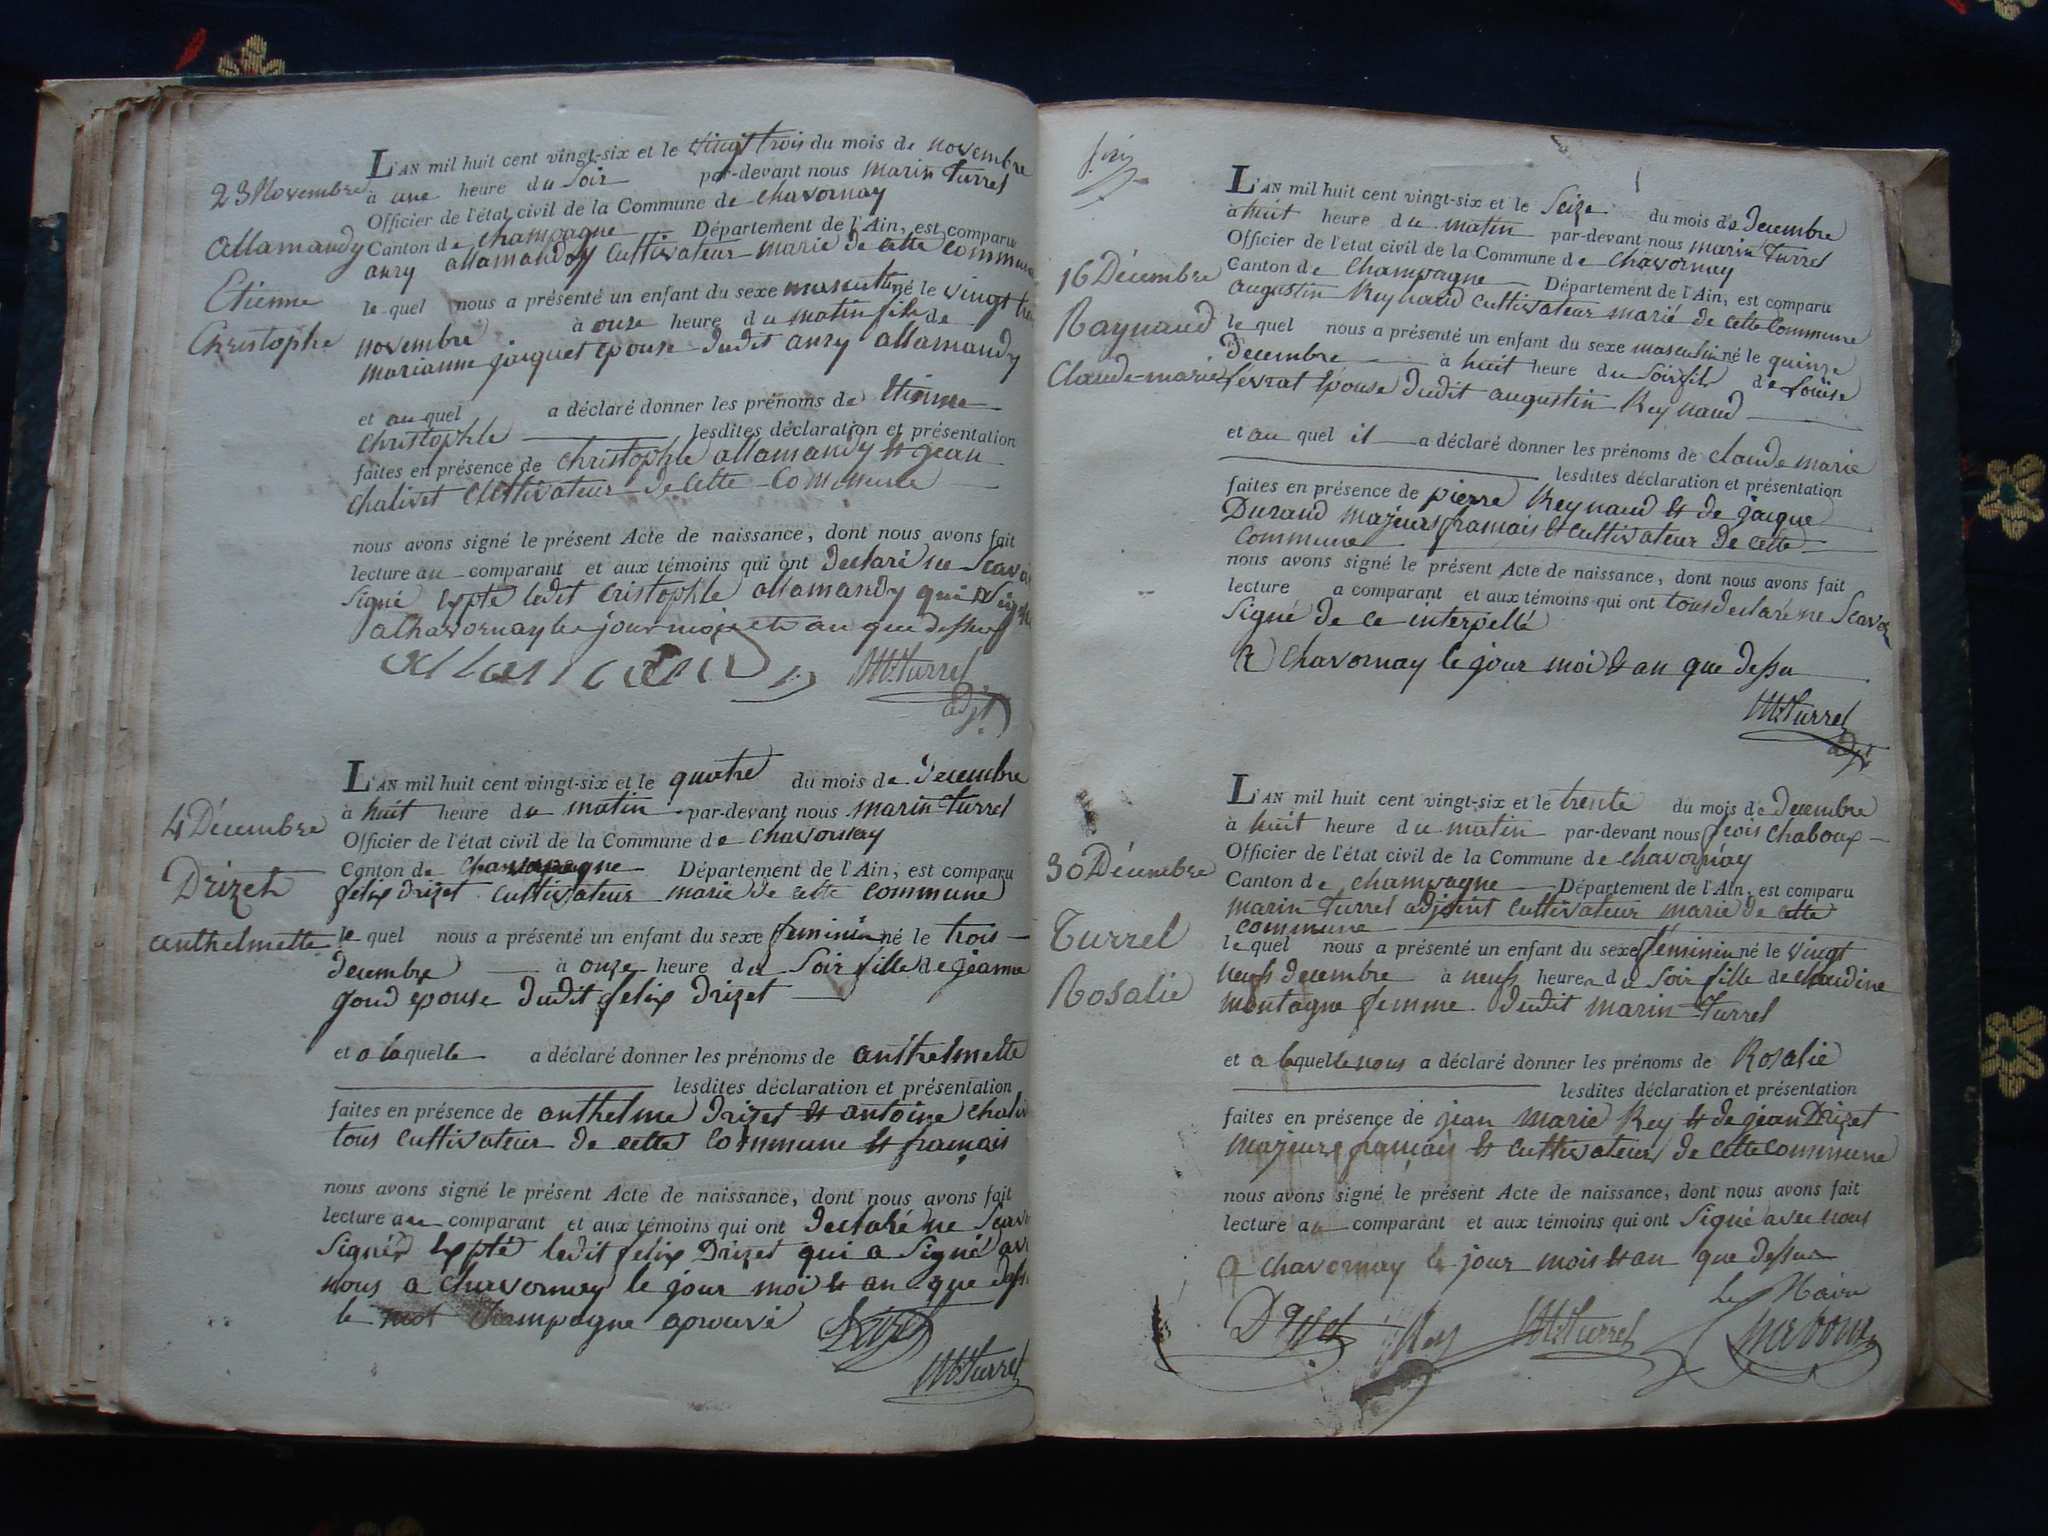 23 Novembre
allamandy
Etienne
Christophe
L'AN mil huit cent vingt-six et le vingt trois du mois de novembre
à une heure du Soir par-devant nous marin turrel
Officier de l'état civil de la Commune de chavornay
Canton de champagne Département de l'Ain, est comparu
anry allamandy cultivateur marie de cette commune
le quel nous a présenté un enfant du sexe masculin né le vingt
novembre à onze heure du matin fils de
marianne jacquet epouse dudit anry allamandy
et au quel a déclaré donner les prénoms de Etienne
christophle lesdites déclaration et présentation
faites en présence de christophle allamandy & jean
chalivet cultivateur de cette Commune
nous avons signé le présent Acte de naissance, dont nous avons fait
lecture au comparant et aux témoins qui ont declaré ne Scavoir
Signé expté ledit cristophle allamandy qui a Signé
a Chavornay les jour mois et an que dessus
allamandy M. turrel
adjt
4 Décembre
Drizet
anthelmette
L'AN mil huit cent vingt-six et le quatre du mois de decembre
à huit heure du matin par-devant nous marin turrel
Officier de l'état civil de la Commune de chavornay
Canton de Département de l'Ain, est comparu
felix drizet cultivateur marie de cette commune
le quel nous a présenté un enfant du sexe feminin né le trois
decembre à onze heure du Soir fille de jeanne
goud epouse dudit felix drizet
et a laquelle a déclaré donner les prénoms de anthelmette
lesdites déclaration et présentation
faites en présence de anthelme drizet & antoine
tous cultivateur de cette Commune & francais
nous avons signé le présent Acte de naissance, dont nous avons fait
lecture au comparant et aux témoins qui ont declaré ne
Signér expté ledit felix Drizet qui a Signé
nous a chavornay le jour moi & an que
le mot Champagne aprouvé
M. turrel
16 Décembre
Raynaud
Claude-marie
L'AN mil huit cent vingt-six et le Seize du mois de decembre
à huit heure du matin par-devant nous marin turrel
Officier de l'état civil de la Commune de chavornay
Canton de Champagne Département de l'Ain, est comparu
augustin Reynaud cultivateur marié de cette Commune
le quel nous a présenté un enfant du sexe masculin né le quinze
decembre à huit heure du Soir fils de Louise
fevrat épouse dudit augustin Reynaud
et au quel il a déclaré donner les prénoms de claude marie
lesdites déclaration et présentation
faites en présence de pierre Reynaud & de jacque
Durand majeurs francais & cultivateur de cette
Commune
nous avons signé le présent Acte de naissance, dont nous avons fait
lecture a comparant et aux témoins qui ont tous declaré ne Scavoi
Signé de ce interpellé
A Chavornay le jour moi & an que dessu
M. turrel
adjt
30 Décembre
Turrel
Rosalie
L'AN mil huit cent vingt-six et le trente du mois de decembre
à huit heure du matin par-devant nous fcois Chaboux
Officier de l'état civil de la Commune de chavornay
Canton de champagne Département de l'Ain, est comparu
marin turrel adjoint cultivateur marie de cette
commune
le quel nous a présenté un enfant du sexe féminin né le vingt
neufs decembre à neufs heure du Soir fille de claudine
montagne femme dudit marin turrel
et a laquelle nous a déclaré donner les prénoms de Rosalie
lesdites déclaration et présentation
faites en présence de jean marie Rey & de jean Drizet
majeurs francais & cultivateur de cette commune
nous avons signé le présent Acte de naissance, dont nous avons fait
lecture au comparant et aux témoins qui ont Signé avec nous
a chavornay le jour mois & an que dessu
le Maire
Drizet Rey M. turrel Chaboux